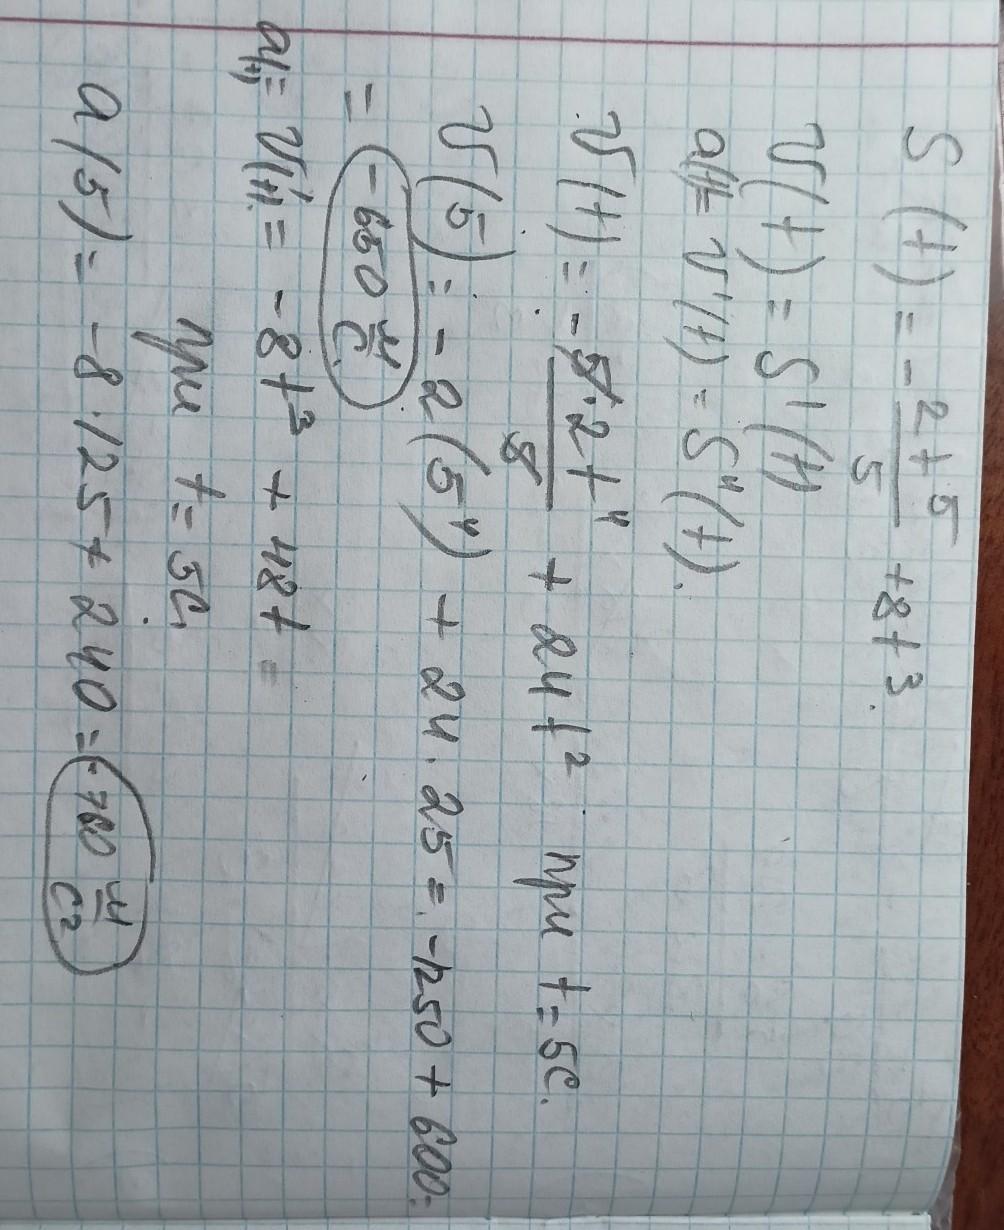 S(t) = - 2t⁵/5 + 8t³.
V(t) = S'(t)
a(t) = V'(t) = S''(t).
V(t) = - 5·2t⁴/5 + 24t² при t = 5с.
V(5) = - 2(5⁴) + 24·25 = -1250 + 600 =
= -650 м/с.
a(t) = V(t)' = -8t³ + 48t =
при t = 5с.
a(5) = -8·125 + 240 = -760 м/с²